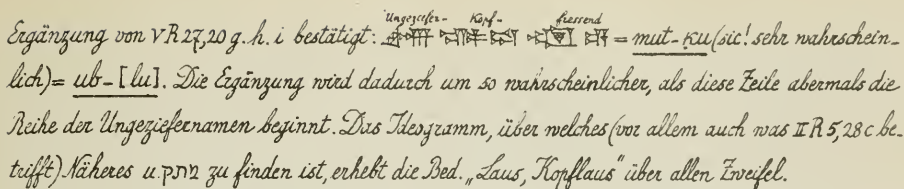 Ungeziefer- Kopf- fressend
Ergänzung von VR27,20 g. h. i bestätigt: = mut-ḳu (sic! sehr wahrschein-
lich) = ub-[lu]. Die Ergänzung wird dadurch um so wahrscheinlicher, als diese Zeile abermals die
Reihe der Ungeziefernamen beginnt. Das Ideogramm, über welches (vor allem auch was II R 5,28 c be-
trifft) Näheres u. מתק zu finden ist, erhebt die Bed. „Laus, Kopflaus“ über allen Zweifel.